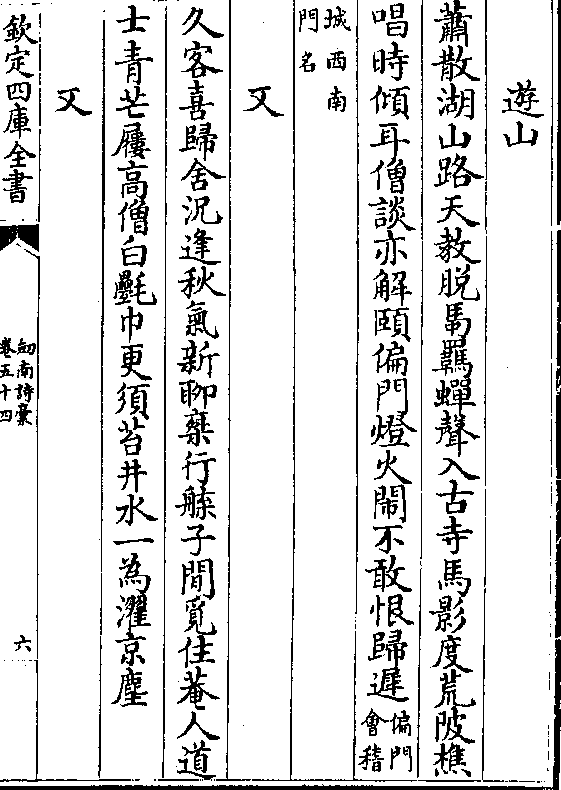 遊山
蕭散湖山路天教脫馬羈蟬聲入古寺馬影度荒陂樵
唱時傾耳僧談亦解頤偏門燈火閙不敢恨歸遲偏門會稽
城西南門名
又
久客喜歸舍況逢秋氣新聊乗行藤子間覓住菴人道
士青芒屨高僧白氎巾更須苔井水一為濯京塵
又
欽定四庫全書
劒南詩槀
卷五十四
六